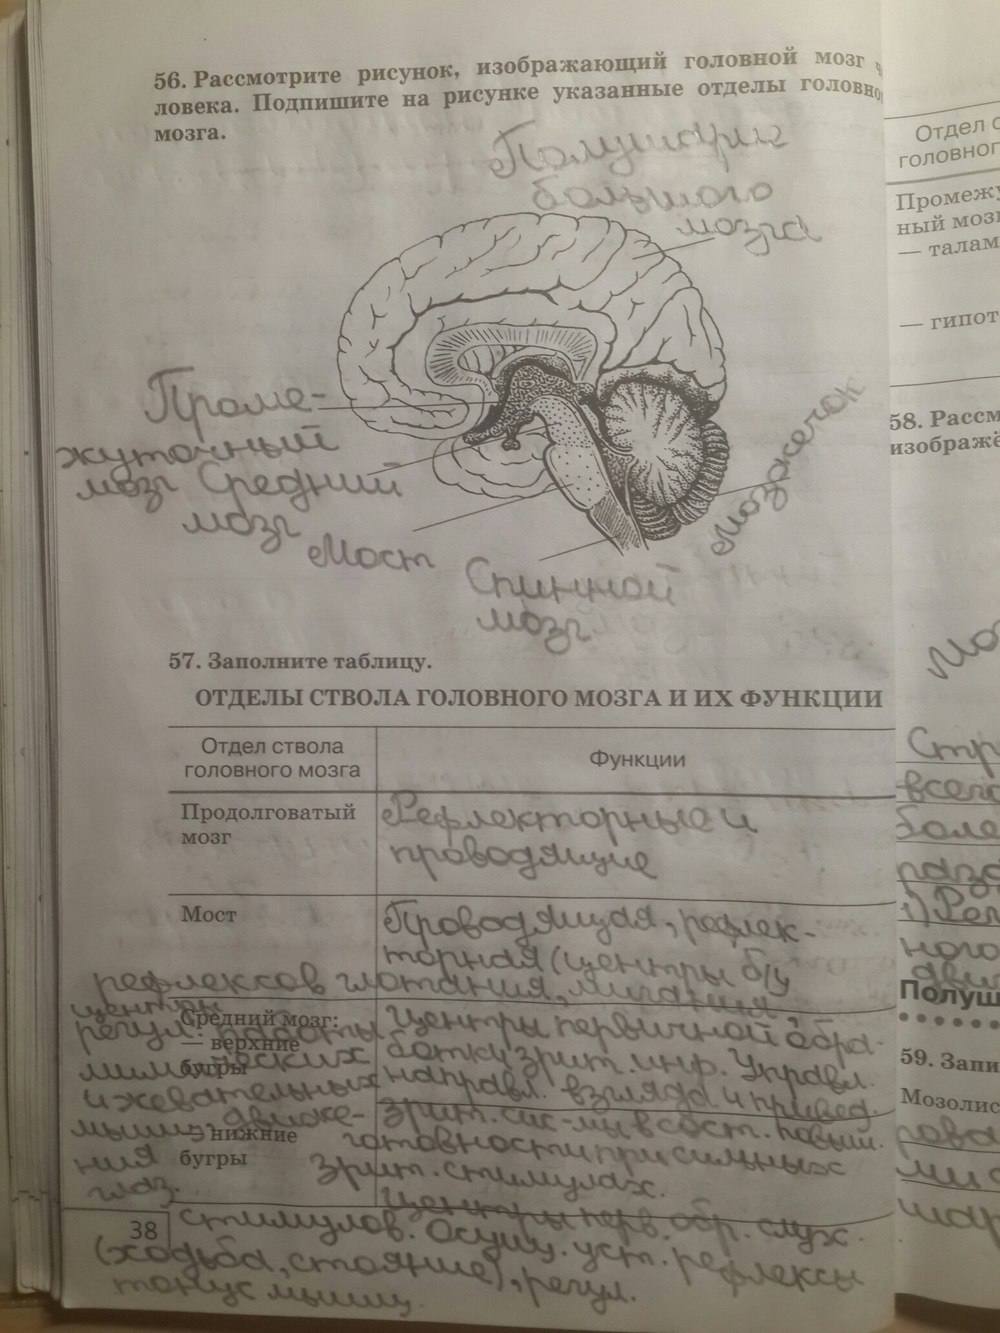 56. Рассмотрите рисунок, изображающий головной мозг че
ловека. Подпишите на рисунке указанные отделы головно
мозга.
Полушария
большого
мозга
Проме-
жуточный
мозг
Средний
мозг
Мост
Спинной
мозг
Мозжечок
57. Заполните таблицу.
ОТДЕЛЫ СТВОЛА ГОЛОВНОГО МОЗГА И ИХ ФУНКЦИИ
Отдел ствола
головного мозга
Функции
Продолговатый
мозг
Рефлекторные и
проводящие
Мост
Проводящая, рефлек-
торная (центры б/у
рефлексов глотания, мигания,
центры
регул. работы
мимических
и жевательных
мышц, движе-
ния
глаз.
Средний мозг:
— верхние
бугры
Центры первичной обра-
ботки зрит. инф. Управл.
направл. взгляда и привед.
зрит. сис-мы в сост. повыш.
готовности при сильных
зрит. стимулах.
— нижние
бугры
Центры перв. обр. слух.
стимулов. Осущ. уст. рефлексы
(ходьба, стояние), регул.
тонус мышц.
38
Отдел с
головног
Промежу
ный мозг
— талам
— гипот
58. Рассм
изображё
Мо
Стр
всего
боле
разд
1) Рег
ного
дви
Полуш
59. Запи
Мозолис
рова
ми
шар